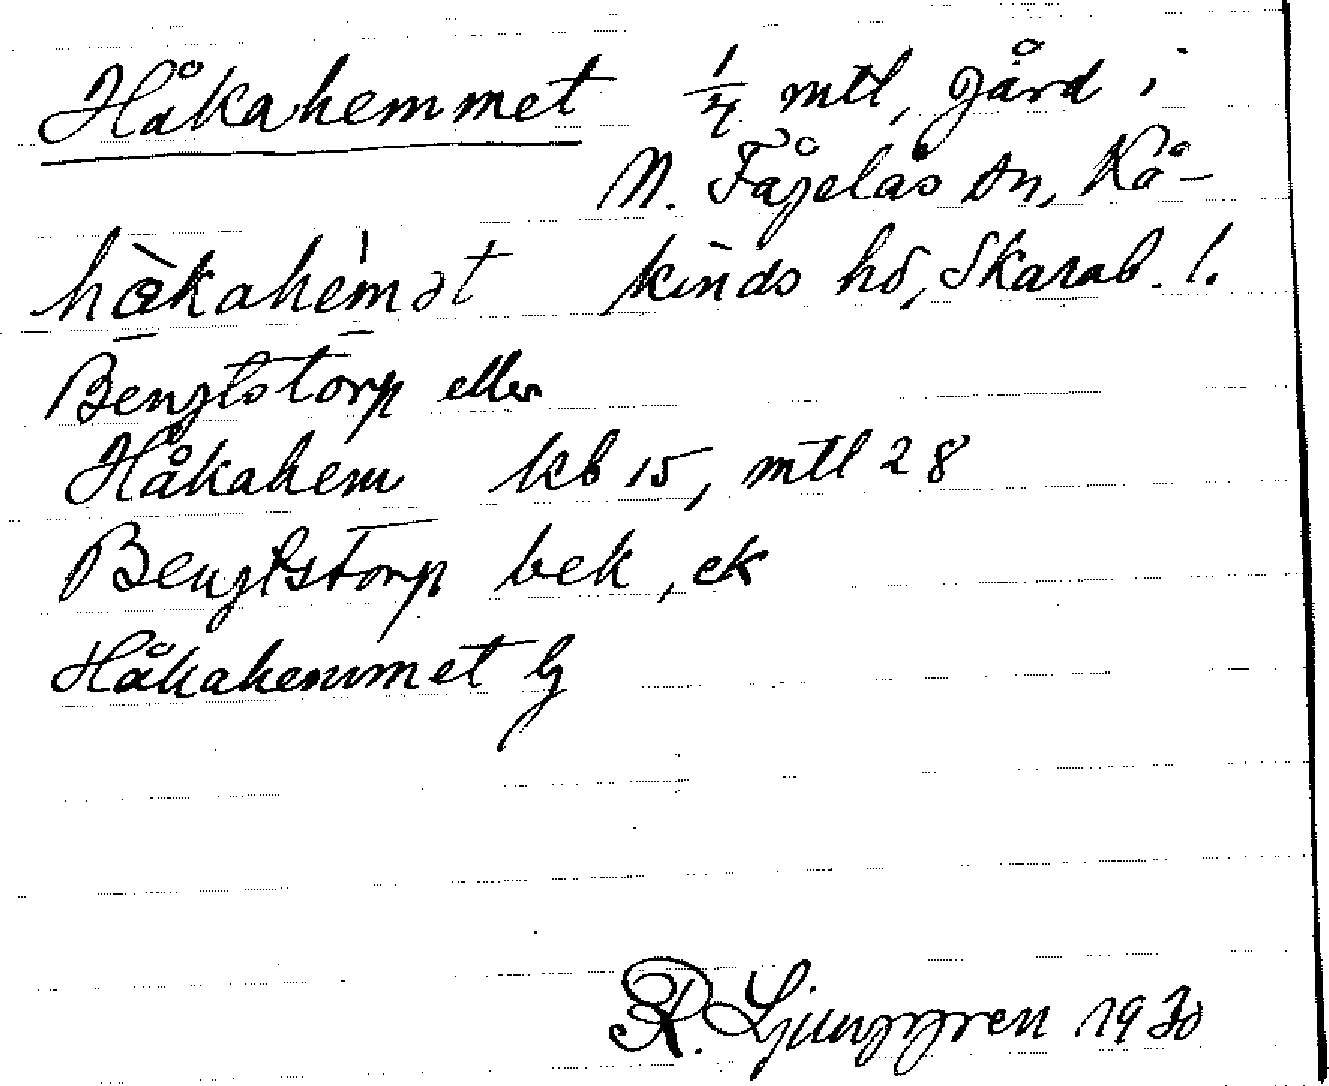 Håkahemmet 1/4 mtl, gård i
N. Fågelås sn, Kå-
hòkahém ət kinds hd, Skarab. l.
Bengtstorp eller
Håkahem kb 15, mtl 28
Bengtstorp bek, ek
Håkahemmet lj
R. Ljunggren 1930